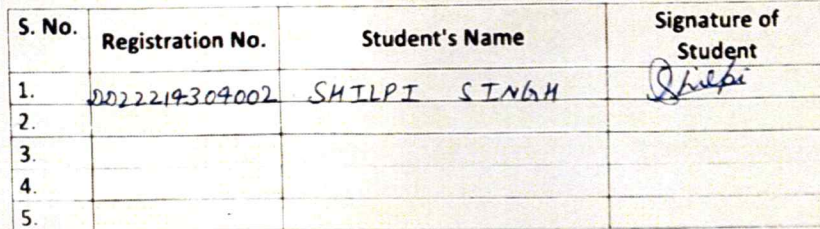 S. No. Registration No. Student's Name Signature of Student
1. DD22214304002 SHILPI SINGH Shilpi
2.
3.
4.
5.